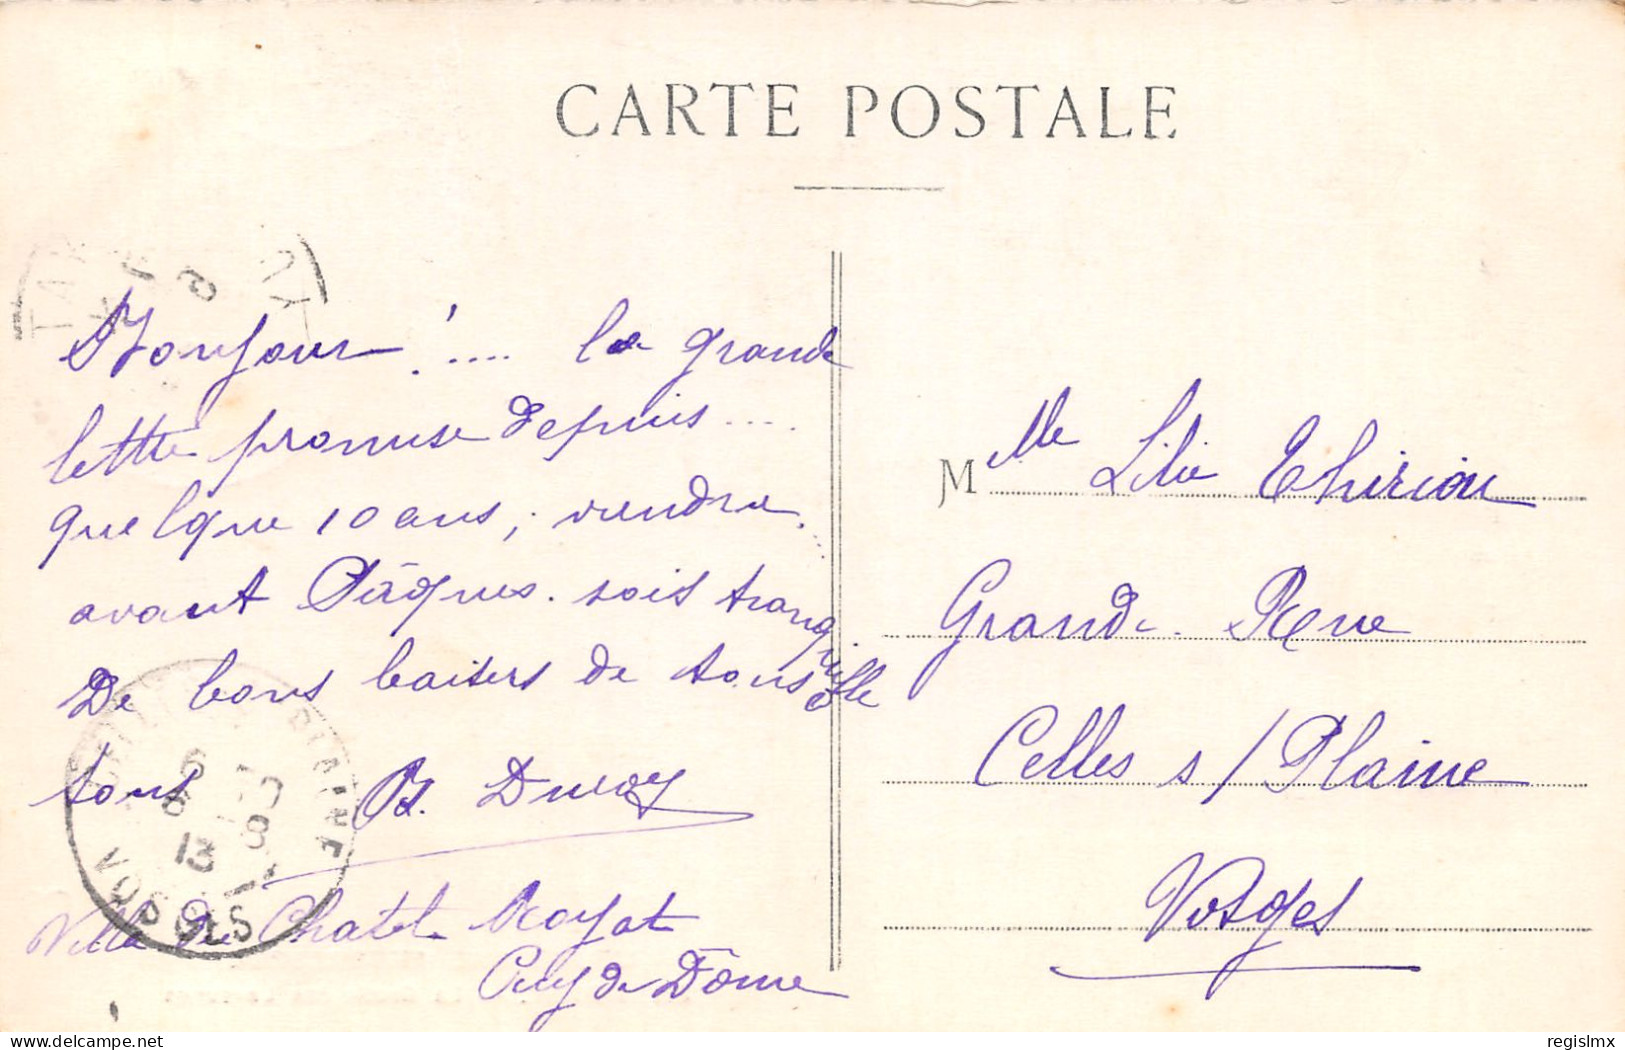 CARTE POSTALE
Bonjour !.... la grande
lettre promise depuis ....
quelque 10 ans, viendra ....
avant Pâques. sois tranquille
De bons baisers de tous à
tous
Villa du Chatel Royat
Puy de Dôme
M elle Lilie Thiriou
Grande Rue
Celles s/Plaine
Vosges
PLAINE
6 - 10
8 - 8
13
VOSGES
regislmx
delcampe.net